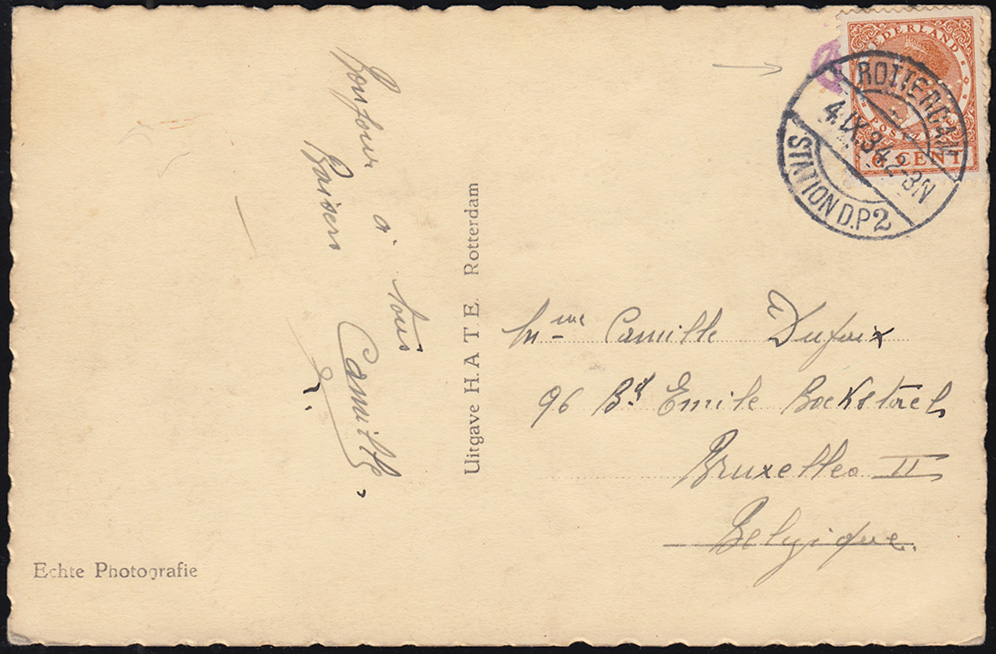 Bonjour à tous
Baisers Camille
Uitgave H.A T E. Rotterdam
Echte Photografie
NEDERLAND
POSTZEGEL
CENT
ROTTERDAM
4.IX.34.2-3N
STATION D.P2
Mme Camille Dufaix
96 Bd Emile Bockstael
Bruxelles II
Belgique.